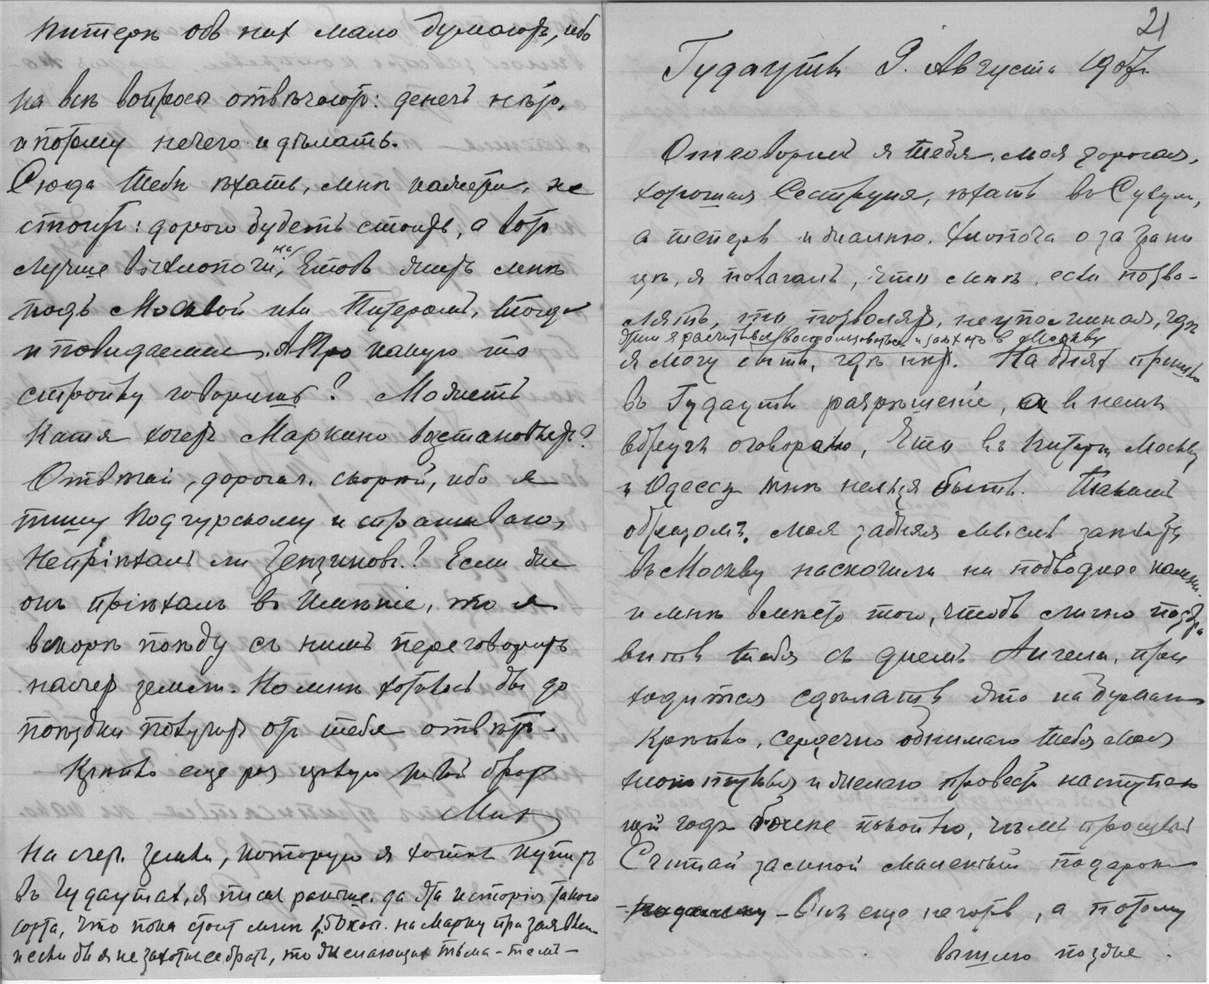 Питерѣ объ нихъ мало думаютъ, ибо
на всѣ вопросы отвѣчаютъ: денегъ нѣтъ,
и потому нечего и дѣлать.
Сюда тебѣ ѣхать, мнѣ кажется, не
стоитъ: дорого будетъ стоить, а вотъ
лучше выхлопочи, чтобъ жить мнѣ
подъ Москвой или Питеромъ, тогда
и повидаемся. А Про какую то
стройку говоришь? Можетъ
Катя хочетъ Маркино возстановлять?
Отвѣчай, дорогая, скорѣй, ибо я
пишу Подгурскому и спрашиваю,
Не пріѣхалъ ли Зензиновъ? Если же
онъ пріѣхалъ въ имѣніе, то я
вскорѣ поѣду съ нимъ переговорить
насчетъ земли. Но мнѣ хотѣлось бы до
поѣздки получить отъ тебя отвѣтъ.
Крѣпко еще разъ цѣлую твой братъ
Мих
На счет земли, которую я хотѣлъ купить
въ Гудаутах, я писал раньше, да эта исторія такого
сорта, что пока стоит мнѣ 1,50 коп. на марку при заявлен
и если бы я не захотѣлъ брать, то желающих тьма-тьмъ-
21
Гудауты 9. Августа 1907.
Отговорилъ я тебя, моя дорогая,
хорошая Сеструня, ѣхать въ Сухум,
а теперь и жалѣю. Хлопоча о за грани
цѣ, я полагалъ, что мнѣ, если позво-
лятъ, то позволятъ, не упоминая, гдѣ
Этим я расчитывал воспользоваться и заѣхать в Москву
я могу быть, гдѣ нѣт. На дняхъ пришло
въ Гудауты разрѣшеніе, и в немъ
вдругъ оговорено, что въ Питеръ Москву
и Одессу мнѣ нельзя быть. Такимъ
образомъ, моя задняя мысль заѣхать
въ Москву наскочила на подводные камни.
и мнѣ вмѣсто того, чтобъ лично поздра
вить тебя съ днемъ Ангела, при
ходится сдѣлать это на бумагѣ
Крѣпко, сердечно обнимаю тебя моя
и желаю провести наступаю
щій годъ болѣе покойно, чѣмъ прошлый
Считай за мной маленькій подарокъ
- Онъ еще не готов, а потому
вышлю позднѣе.